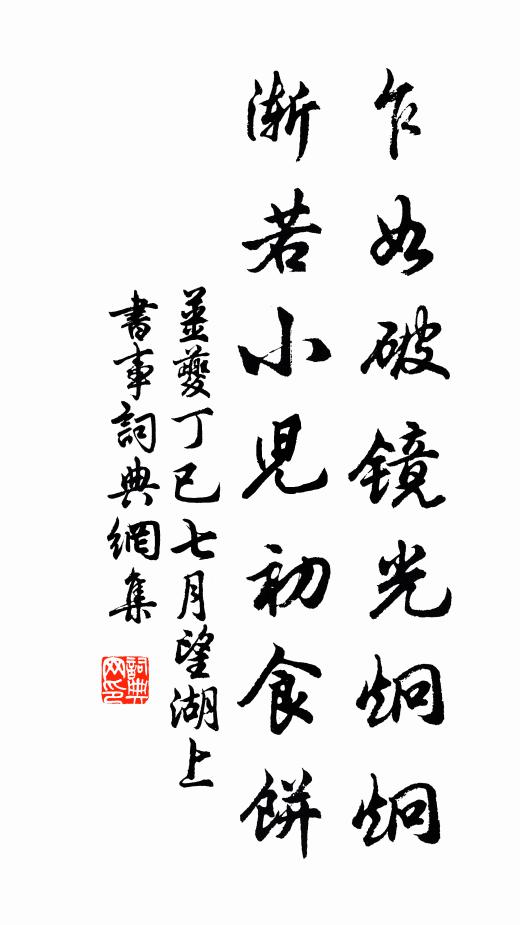 乍如破镜光炯炯
渐若小児初食餅
姜夔丁巳七月望湖上
書事詞典網集
詞典
网印